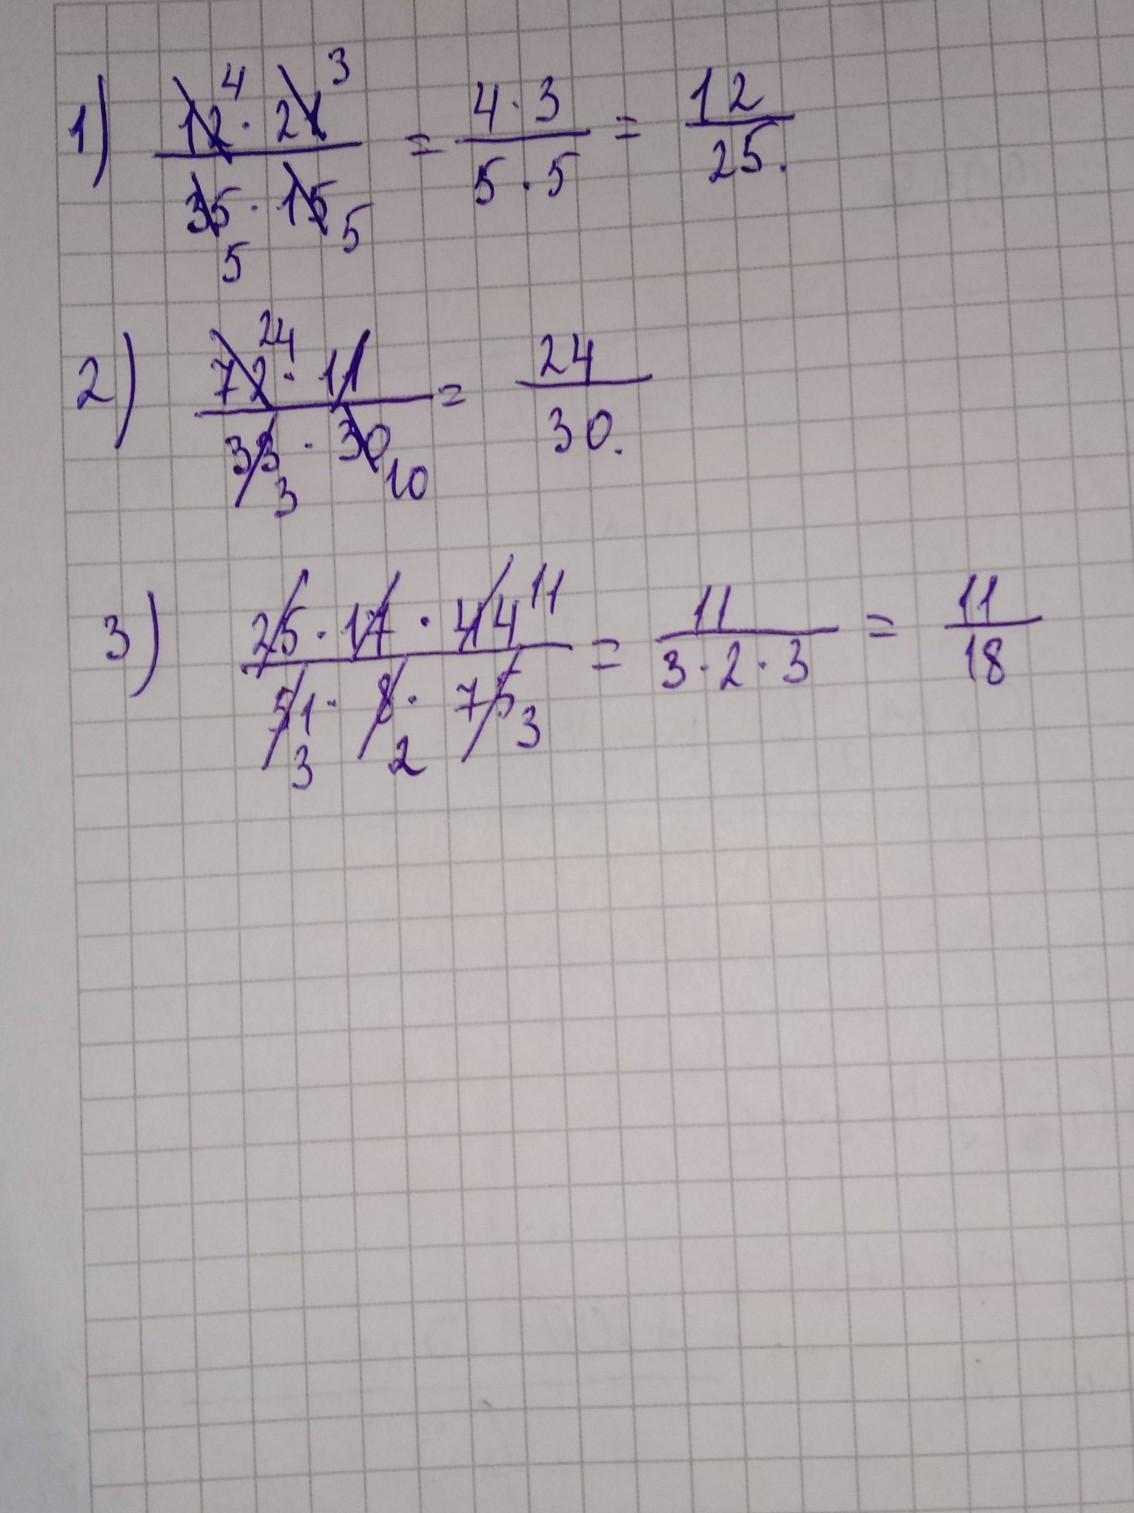 1) (12⁴ · 21³)/(35₅ · 15₅) = (4 · 3)/(5 · 5) = 12/25.
2) (72²⁴ · 11)/(33₃ · 30₁₀) = 24/30.
3) (25 · 17 · 44¹¹)/(51₃ · 8₂ · 75₃) = 11/(3 · 2 · 3) = 11/18